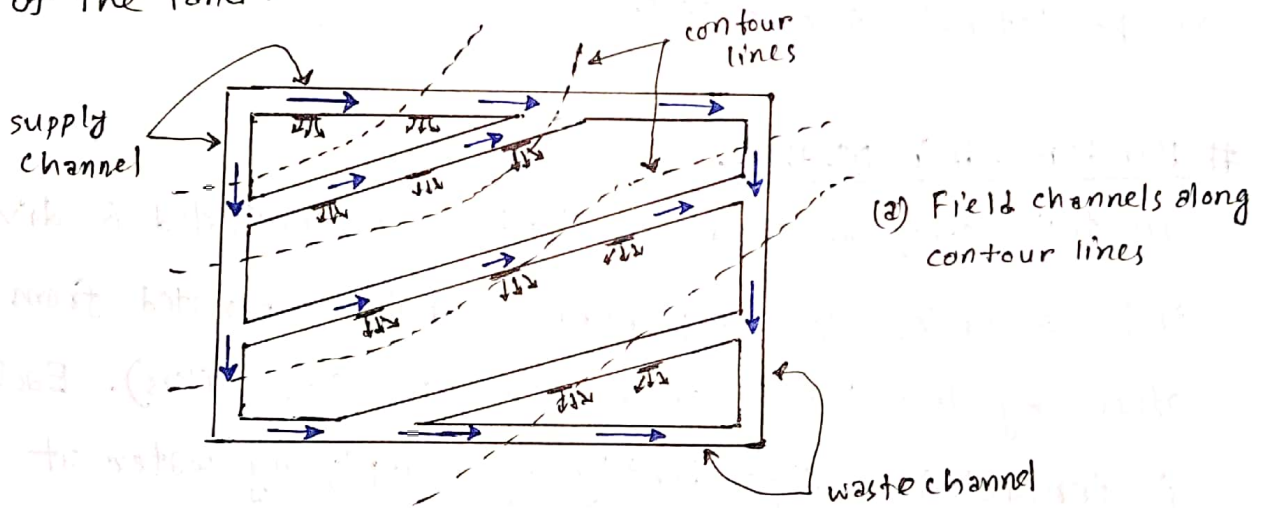 of The land
contour
lines
supply
channel
(a) Field channels along
contour lines
waste channel